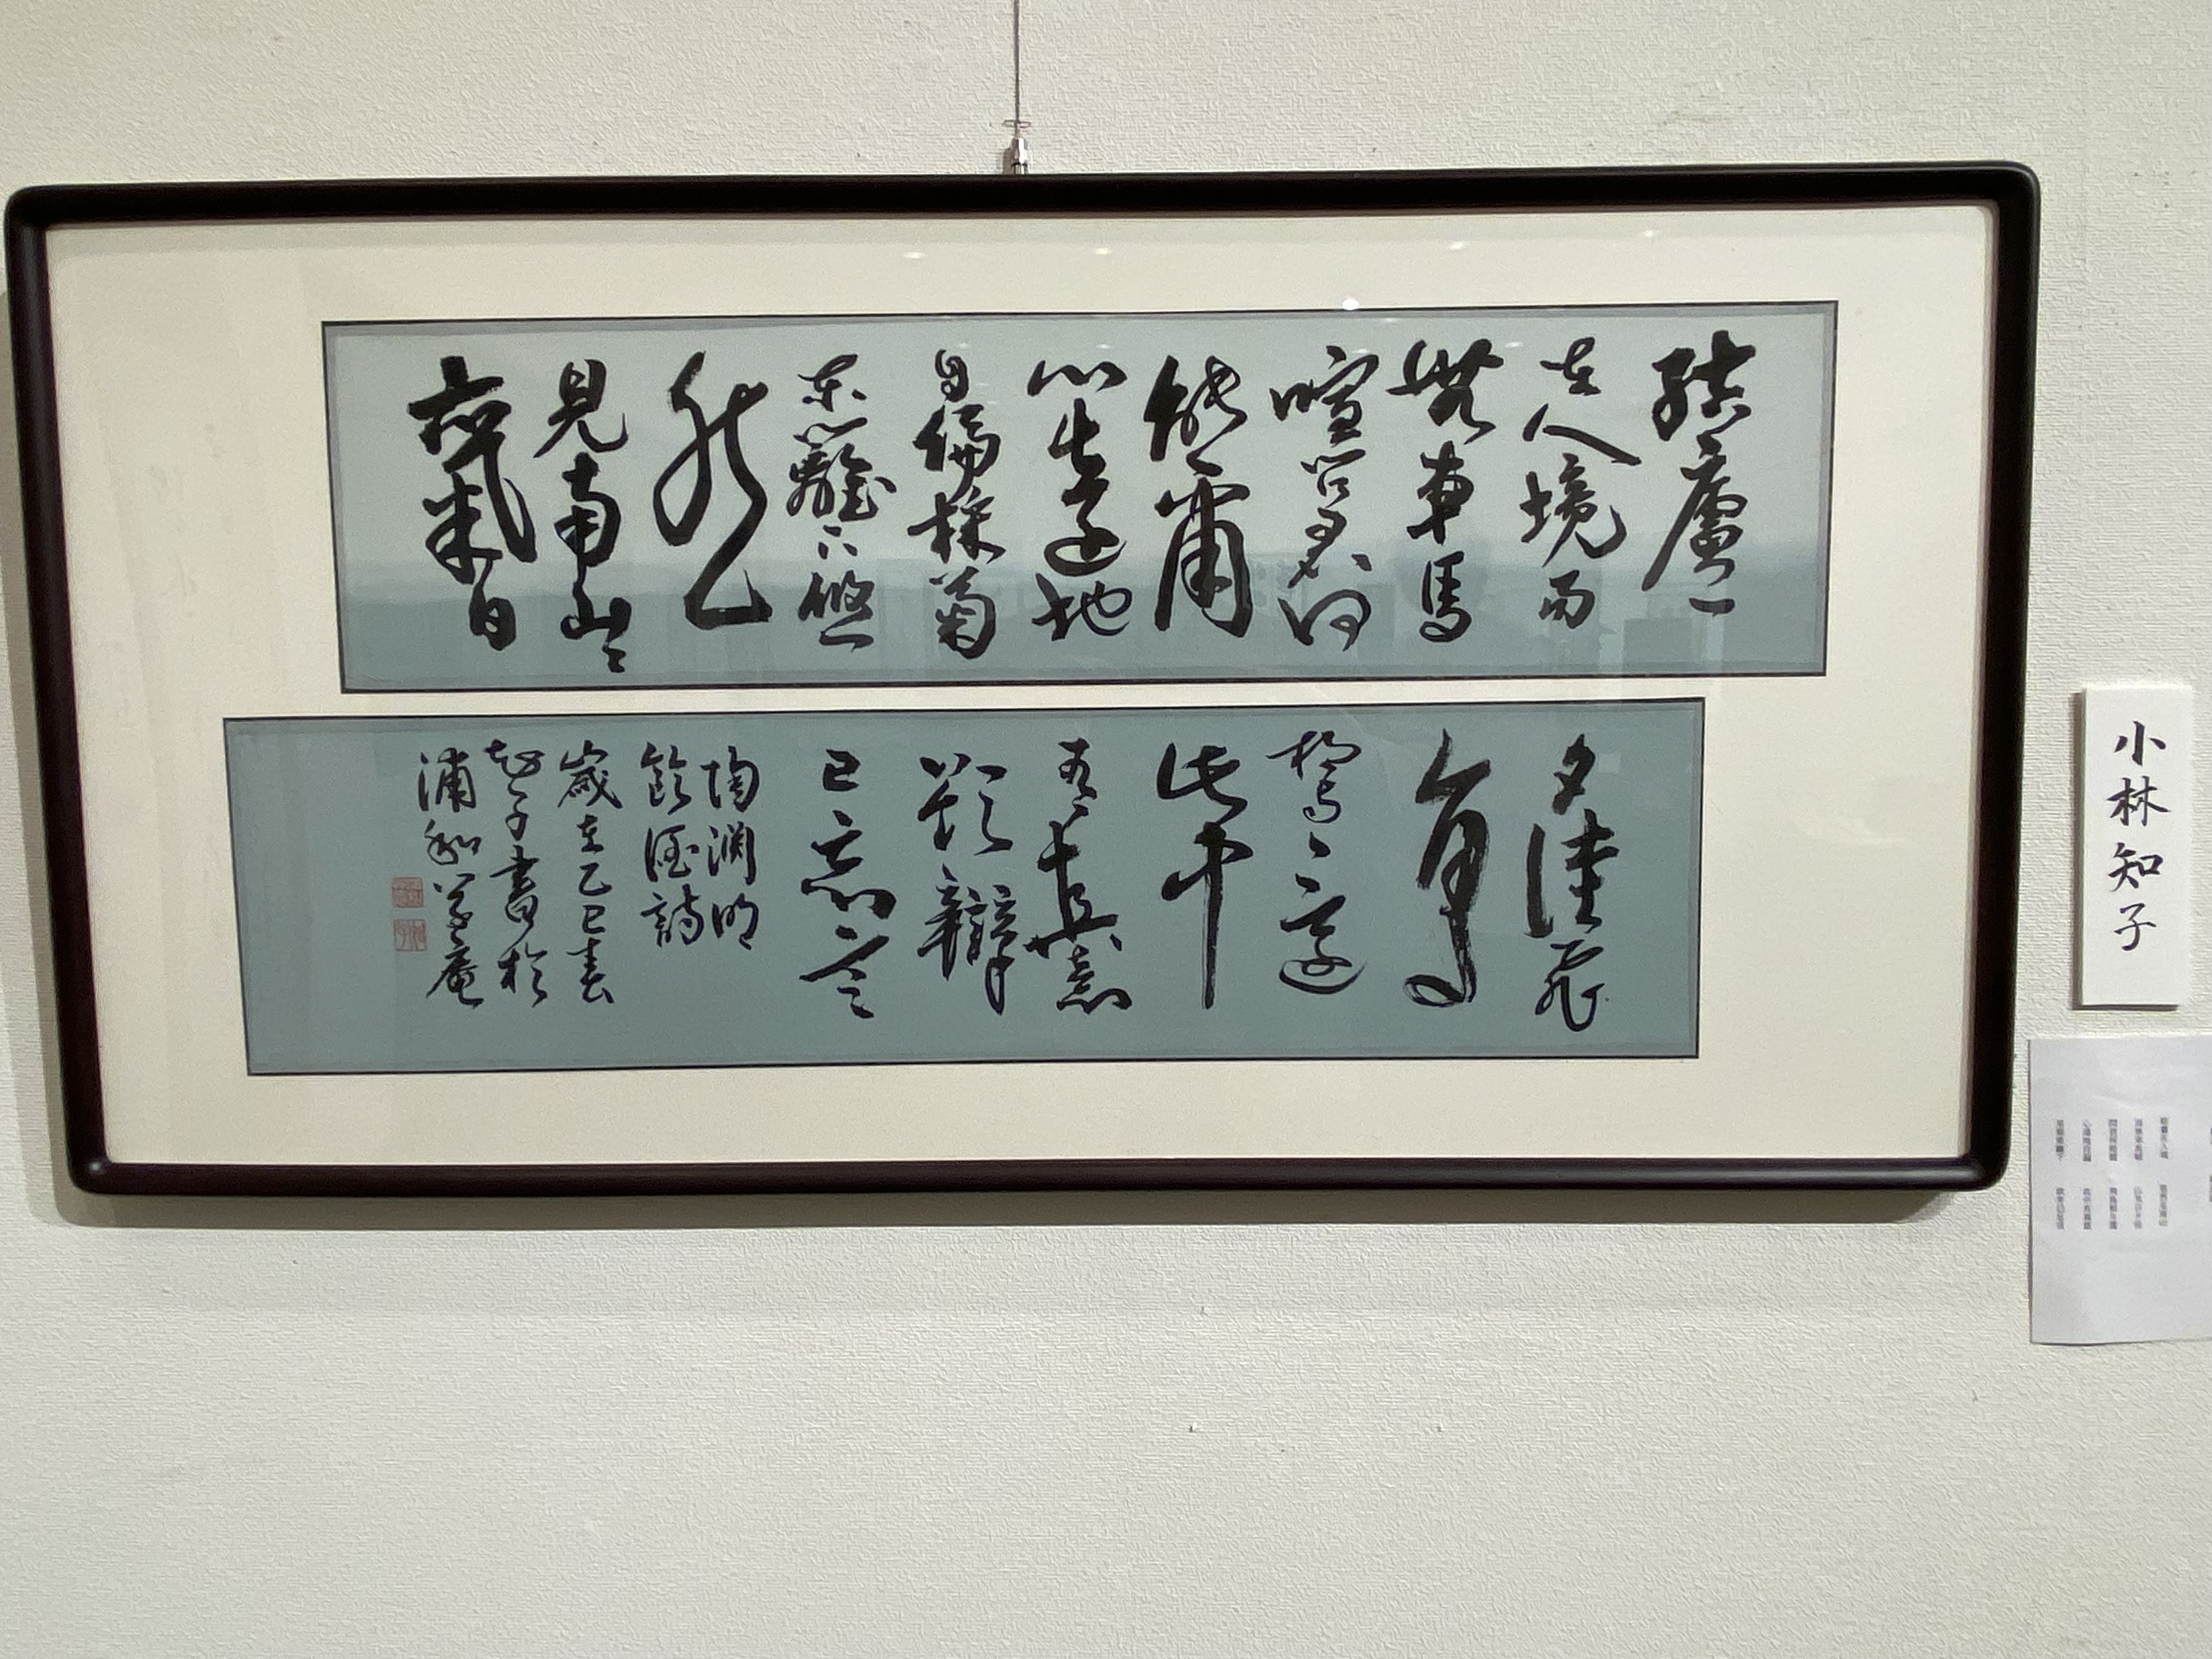 結廬
在人境而
無車馬
喧問君何
能爾
心遠地
自偏採菊
東籬下悠
然
見南山〻
氣日
夕佳飛
鳥
相與還
此中
有真意
欲辯
已忘言
陶渊明
飲酒詩
歳在乙巳春
知子書於
浦和庵
小林知子